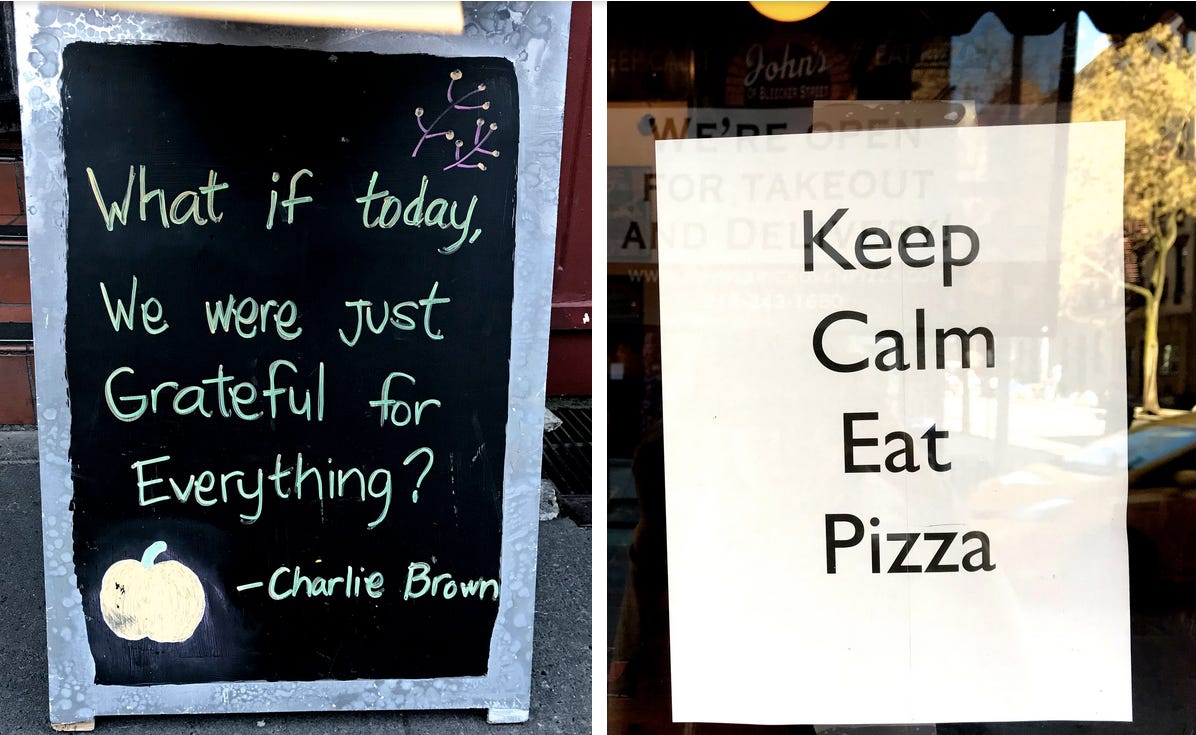 What if today,
We were just
Grateful for
Everything?
-Charlie Brown
John's
OF BLEECKER STREET
EAT PIZZA
WE'RE OPEN
FOR TAKEOUT
AND DELIVERY!
Keep
Calm
Eat
Pizza